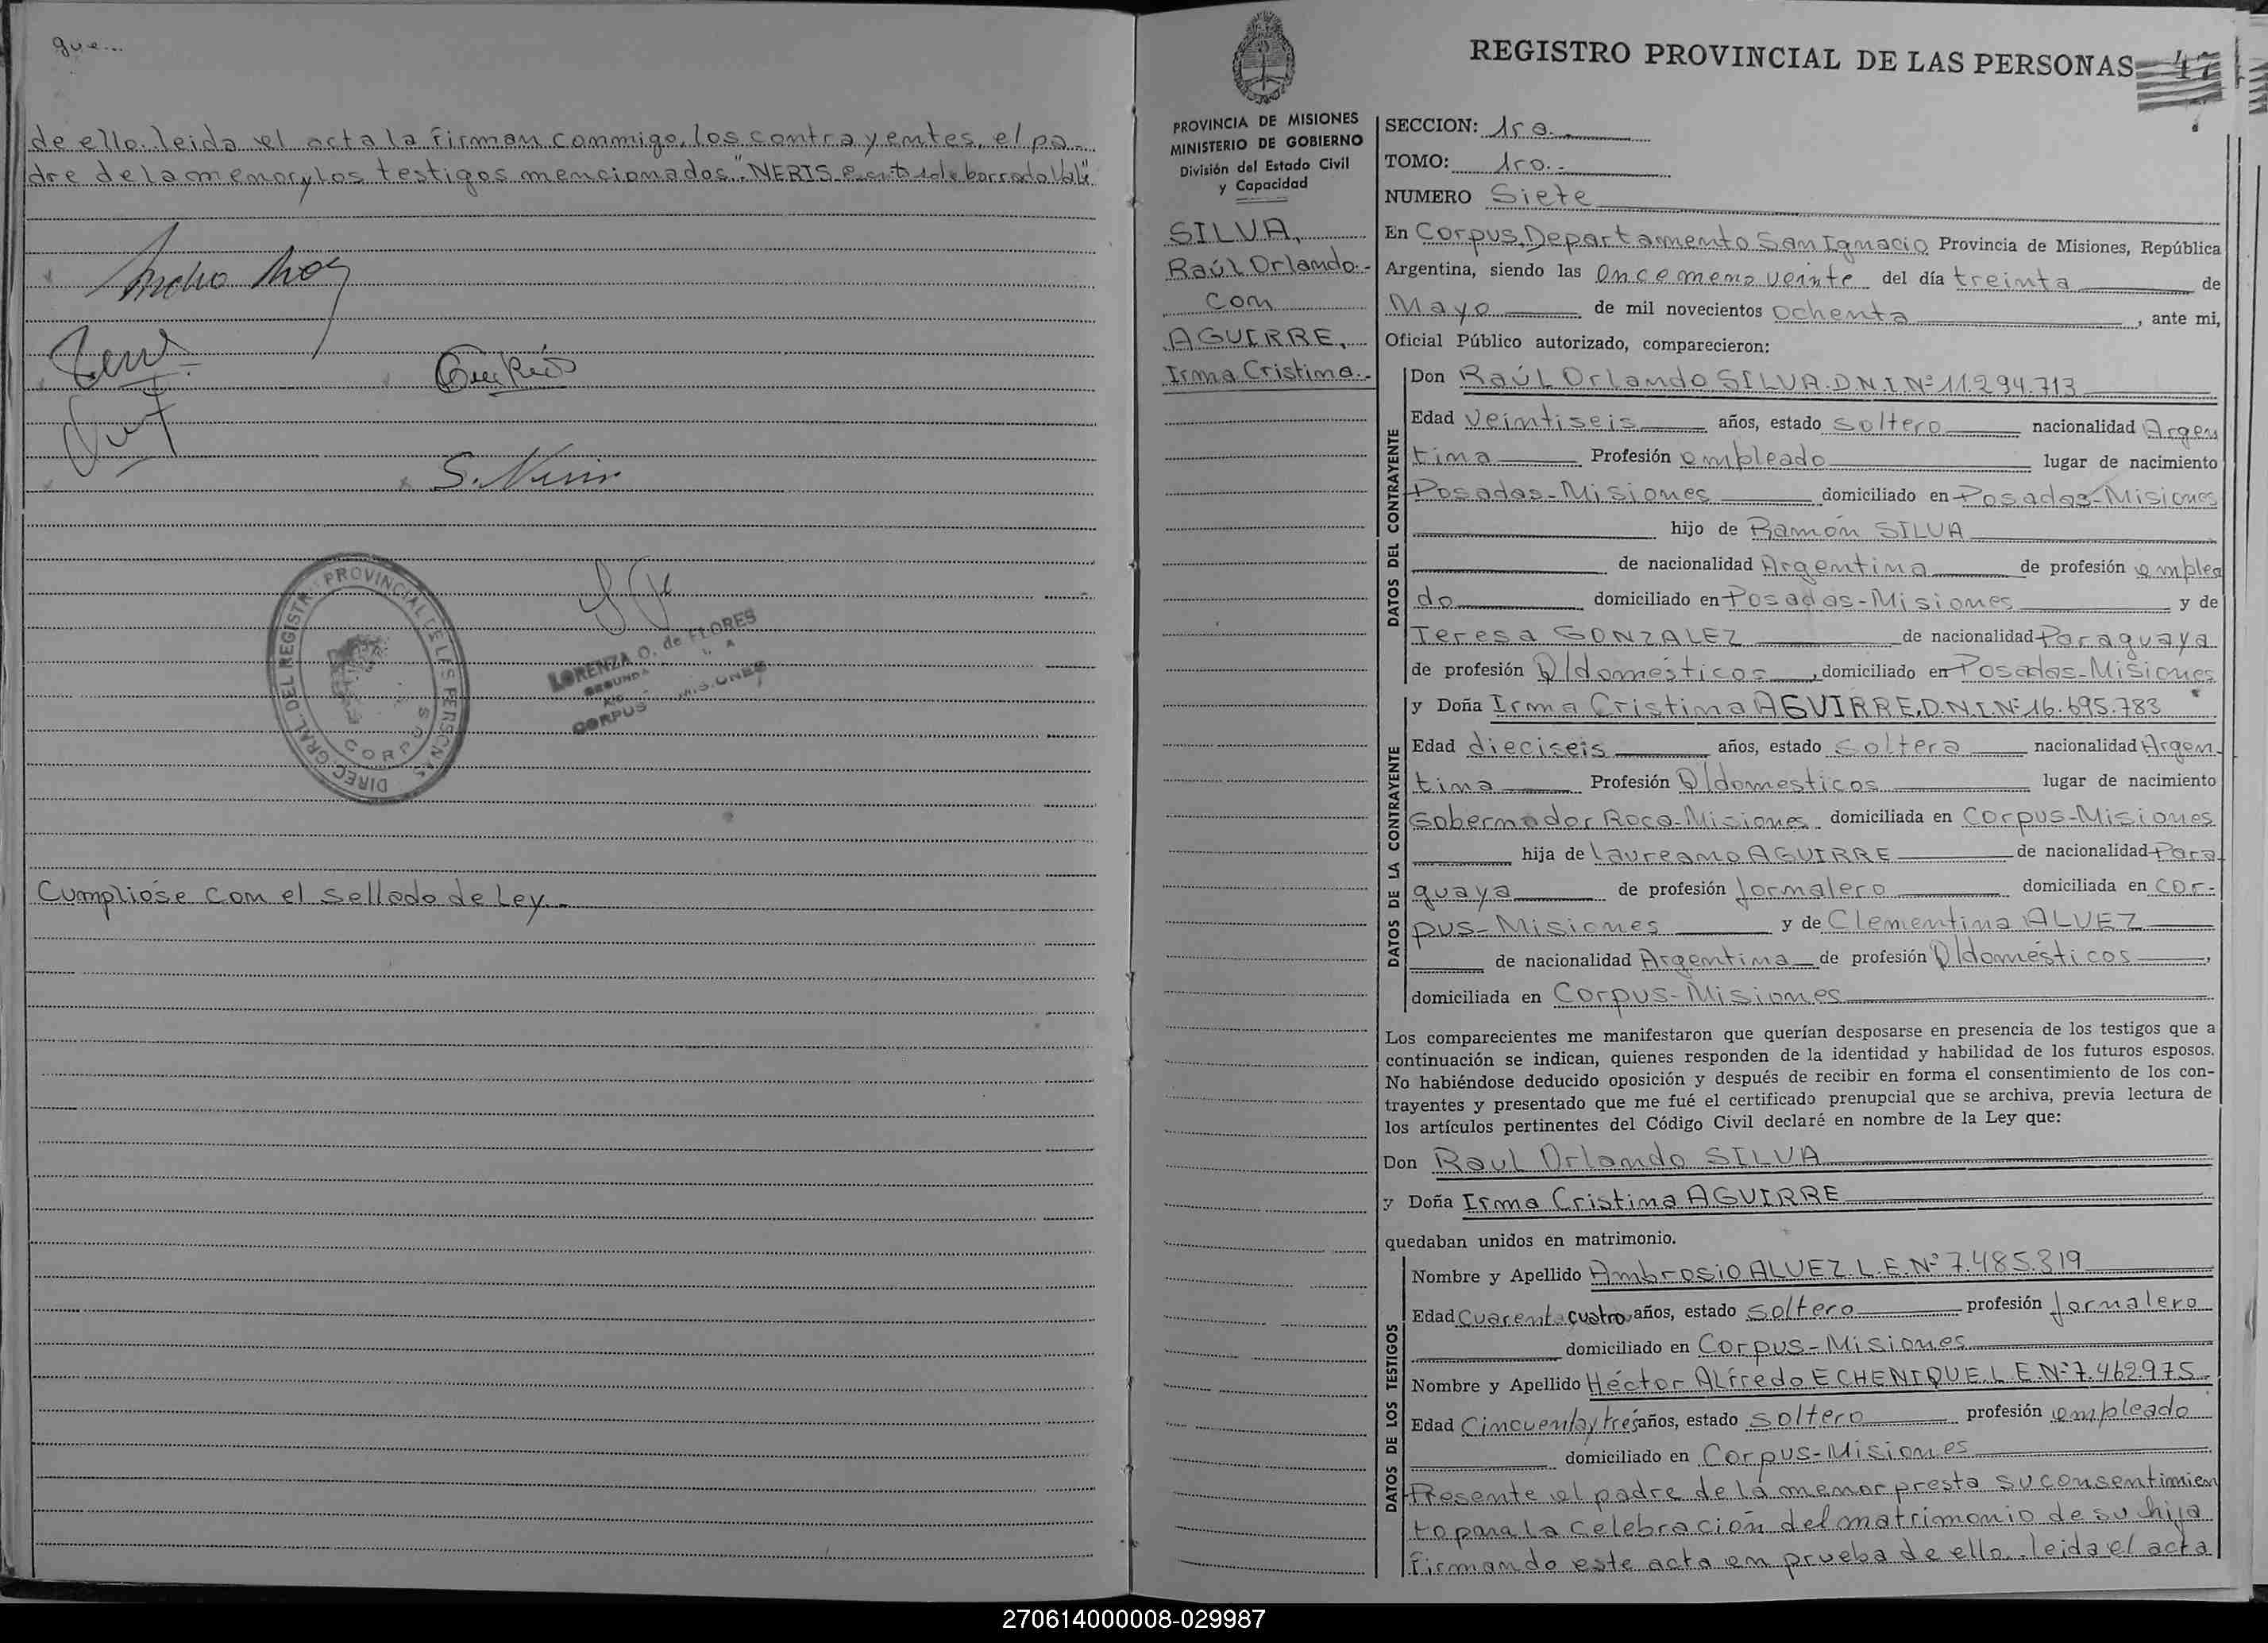 gue...
de ello. leida el acta la firman conmigo, los contrayentes, el pa-
dre de la menor y los testigos mencionados." NERIS e borrado Vale".
S. Neris
DIREC. GRAL. DEL REGISTR. PROVINCIAL DE LES PERSONAS
CORPUS
LORENZA O. de FLORES
CORPUS MISIONES
Cumplióse con el sellado de Ley.-
REGISTRO PROVINCIAL DE LAS PERSONAS 47
PROVINCIA DE MISIONES
MINISTERIO DE GOBIERNO
División del Estado Civil
y Capacidad
SILVA,
Raúl Orlando.-
con
AGUIRRE,
Irma Cristina.-
SECCION: 1ra.
TOMO: 1ro.-
NUMERO Siete
En Corpus, Departamento San Ignacio Provincia de Misiones, República
Argentina, siendo las Once menos veinte del día treinta de
Mayo de mil novecientos Ochenta, ante mi,
Oficial Público autorizado, comparecieron:
DATOS DEL CONTRAYENTE
Don Raúl Orlando SILVA. D.N.I. Nº 11.294.713
Edad Veintiseis años, estado Soltero nacionalidad Argen
tina Profesión empleado lugar de nacimiento
Posadas-Misiones domiciliado en Posadas-Misiones
hijo de Ramón SILVA
de nacionalidad Argentina de profesión emplea
do domiciliado en Posadas-Misiones y de
Teresa GONZALEZ de nacionalidad Paraguaya
de profesión Q/domésticos, domiciliado en Posadas-Misiones
DATOS DE LA CONTRAYENTE
y Doña Irma Cristina AGUIRRE, D.N.I. Nº 16.695.783
Edad dieciseis años, estado Soltera nacionalidad Argen-
tina Profesión Q/domesticos lugar de nacimiento
Gobernador Roca-Misiones domiciliada en Corpus-Misiones
hija de Laureano AGUIRRE de nacionalidad Para
guaya de profesión Jornalero domiciliada en Cor-
pus-Misiones y de Clementina ALVEZ
de nacionalidad Argentina de profesión Q/domésticos,
domiciliada en Corpus-Misiones
Los comparecientes me manifestaron que querían desposarse en presencia de los testigos que a
continuación se indican, quienes responden de la identidad y habilidad de los futuros esposos.
No habiéndose deducido oposición y después de recibir en forma el consentimiento de los con-
trayentes y presentado que me fué el certificado prenupcial que se archiva, previa lectura de
los artículos pertinentes del Código Civil declaré en nombre de la Ley que:
Don Raul Orlando SILVA
y Doña Irma Cristina AGUIRRE
quedaban unidos en matrimonio.
DATOS DE LOS TESTIGOS
Nombre y Apellido Ambrosio ALVEZ. L.E. Nº 7.485.319
Edad Cuarenta cuatro años, estado Soltero profesión Jornalero
domiciliado en Corpus-Misiones
Nombre y Apellido Héctor Alfredo ECHENIQUE. L.E. Nº 7.462.975
Edad Cincuenta y tres años, estado Soltero profesión empleado
domiciliado en Corpus-Misiones
Presente el padre de la menor presta su consentimien
to para la celebración del matrimonio de su hija
firmando este acta en prueba de ello. leida el acta
270614000008-029987